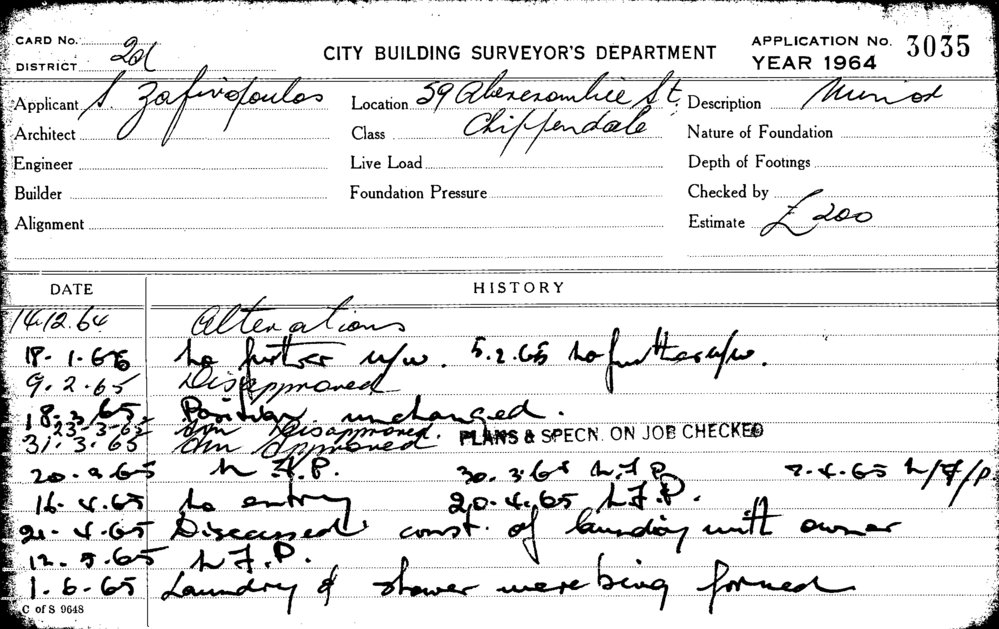 CARD No.
DISTRICT
CITY BUILDING SURVEYOR'S DEPARTMENT
APPLICATION No. 3035
YEAR 1964
Applicant S. Zafiropoulos
Location 59 Abercrombie St.
Chippendale
Description Minor
Architect
Class
Nature of Foundation
Engineer
Live Load
Depth of Footings
Builder
Foundation Pressure
Checked by
Alignment
Estimate £200
DATE HISTORY
14.12.64 Alterations
18.1.65 No further u/w. 5.2.65 No further u/w.
9.2.65 Disapproved
18.3.65 Position unchanged.
23.3.65 Disapproved. PLANS & SPECN. ON JOB CHECKED
31.3.65 Approved
N.F.P. 30.3.65 N.F.P. N/F/P.
16.4.65 No entry 20.4.65 N.F.P.
21.4.65 Discussed const. of laundry with owner
12.5.65 N.F.P.
1.6.65 Laundry & shower were being formed
C of S 9648